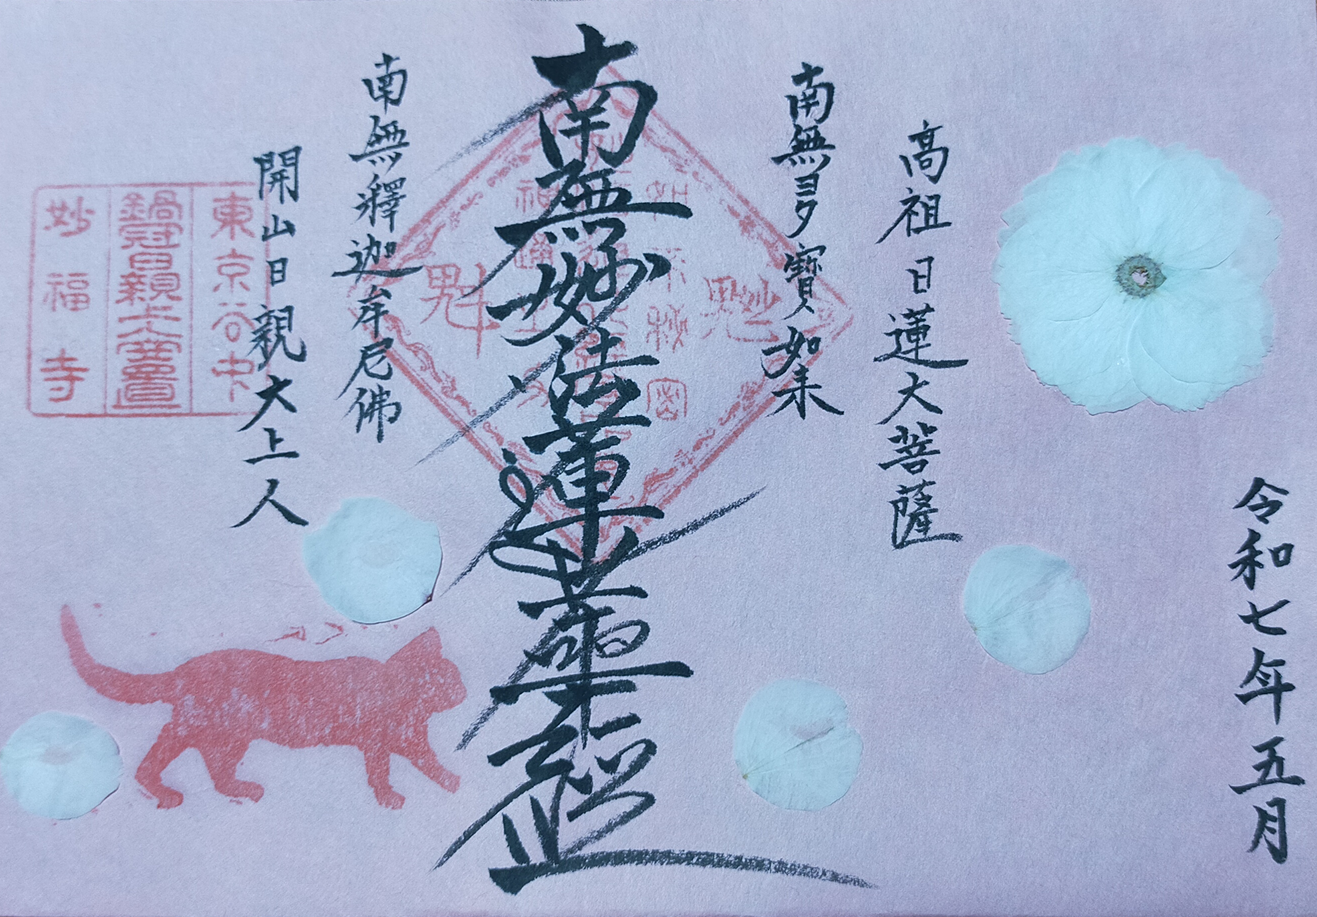 令和七年五月
高祖日蓮大菩薩
南無多寶如来
南無妙法蓮華経
南無釋迦牟尼佛
開山日親大上人
東京谷中
鍋冠日親上人安置
妙福寺